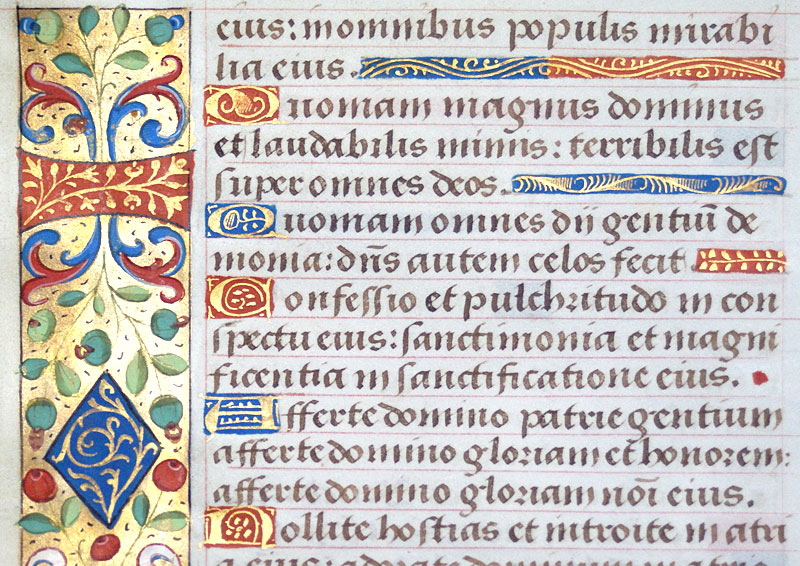 eius: in omnibus populis mirabi
lia eius.
Quoniam magnus dominus
et laudabilis nimis: terribilis est
super omnes deos.
Quoniam omnes dii gentiū de
monia: dn̄s autem celos fecit.
Confessio et pulchritudo in con
spectu eius: sanctimonia et magni
ficentia in sanctificatione eius.
Afferte domino patrie gentium
afferte domino gloriam et honorem:
afferte domino gloriam noī eius.
Tollite hostias et introite in atri
a eius: adorate dominum in atrio